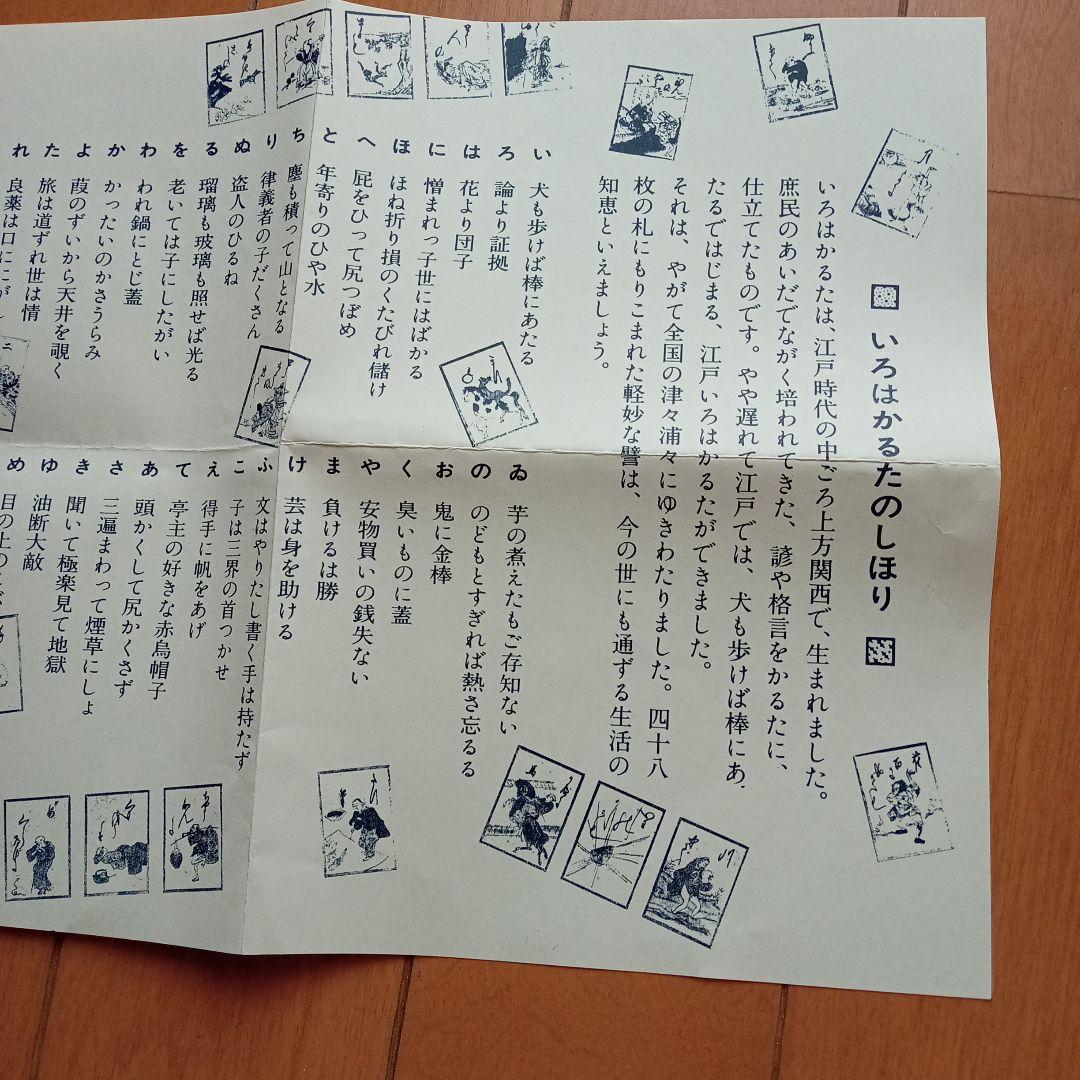 いろはかるたのしほり
いろはかるたは、江戸時代の中ごろ上方関西で、生まれました。
庶民のあいだでながく培われてきた、諺や格言をかるたに、
仕立てたものです。やや遅れて江戸では、犬も歩けば棒にあ
たるではじまる、江戸いろはかるたができました。
それは、やがて全国の津々浦々にゆきわたりました。四十八
枚の札にもりこまれた軽妙な譬は、今の世にも通ずる生活の
知恵といえましょう。
い 犬も歩けば棒にあたる
ろ 論より証拠
は 花より団子
に 憎まれっ子世にはばかる
ほ ほね折り損のくたびれ儲け
へ 屁をひって尻つぼめ
と 年寄りのひや水
ち 塵も積って山となる
り 律義者の子だくさん
ぬ 盗人のひるね
る 瑠璃も玻璃も照せば光る
を 老いては子にしたがい
わ われ鍋にとじ蓋
か かったいのかさうらみ
よ 葭のずいから天井を覗く
た 旅は道ずれ世は情
れ 良薬は口ににがし
ゐ 芋の煮えたもご存知ない
の のどもとすぎれば熱さ忘るる
お 鬼に金棒
く 臭いものに蓋
や 安物買いの銭失ない
ま 負けるは勝
け 芸は身を助ける
ふ 文はやりたし書く手は持たず
こ 子は三界の首つかせ
え 得手に帆をあげ
て 亭主の好きな赤烏帽子
あ 頭かくして尻かくさず
さ 三遍まわって煙草にしょ
き 聞いて極楽見て地獄
ゆ 油断大敵
め 目の上の